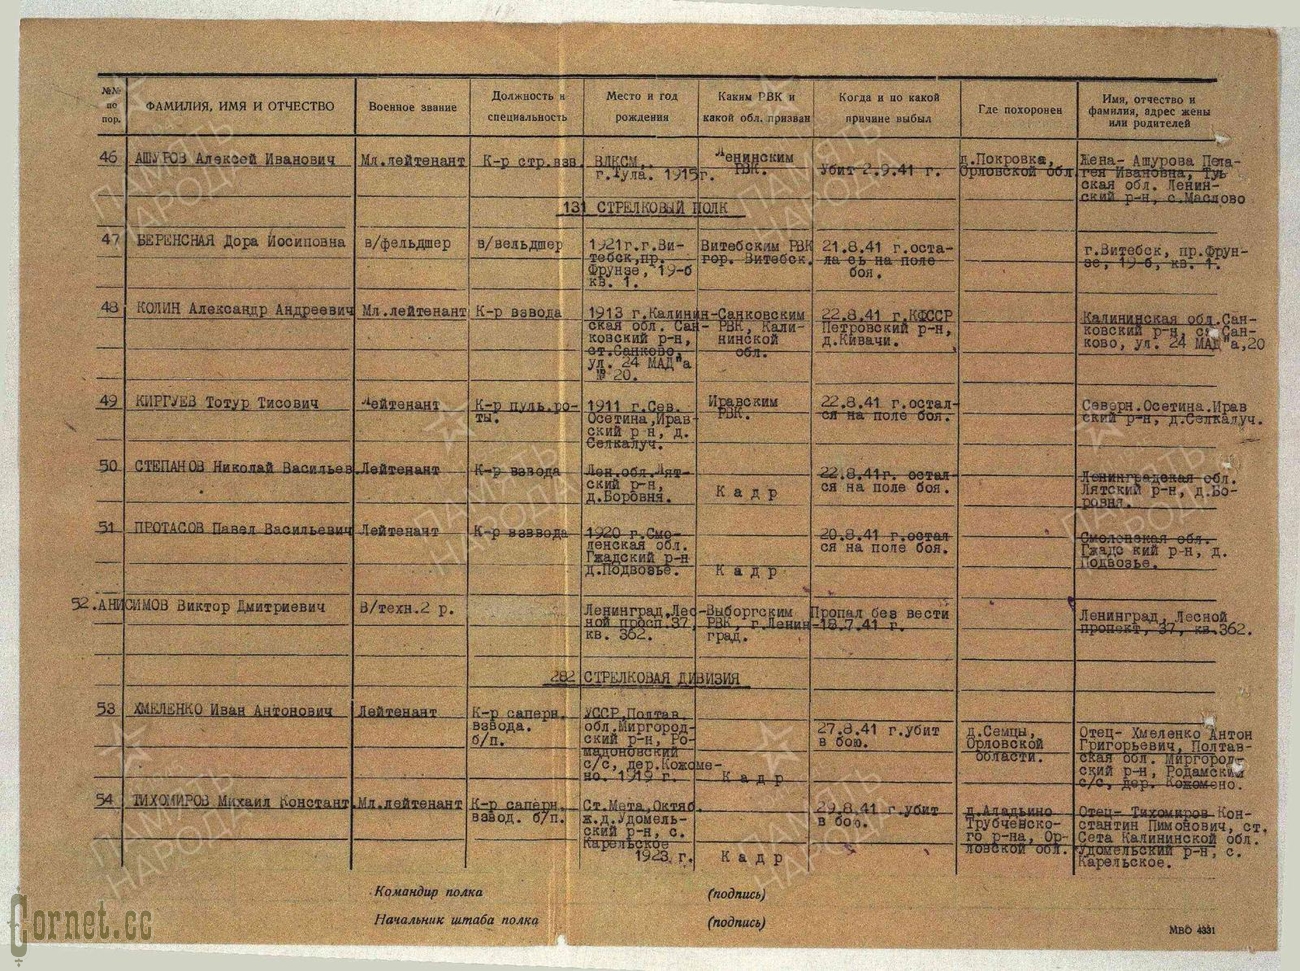 №№ по пор.
ФАМИЛИЯ, ИМЯ И ОТЧЕСТВО
Военное звание
Должность и специальность
Место и год рождения
Каким РВК и какой обл. призван
Когда и по какой причине выбыл
Где похоронен
Имя, отчество и фамилия, адрес жены или родителей
46 АШУРОВ Алексей Иванович
Мл.лейтенант
К-р стр.взв.
ВЛКСМ,
г.Тула. 1915г.
Ленинским
РВК.
Убит 2.9.41 г.
д.Покровка,
Орловской обл.
Жена- Ашурова Пела-
гея Ивановна, Туль
ская обл. Ленин-
ский р-н, с.Маслово
131 СТРЕЛКОВЫЙ ПОЛК
47 БЕРЕНСНАЯ Дора Иосиповна
в/фельдшер
в/вельдшер
1921г.г.Ви-
тебск,пр.
Фрунзе, 19-б
кв. 1.
Витебским РВК
гор. Витебск.
21.8.41 г.оста-
ла сь на поле
боя.
г.Витебск, пр.Фрун-
зе, 19-б, кв. 1.
48 КОЛИН Александр Андреевич
Мл.лейтенант
К-р взвода
1913 г.Калинин-
ская обл. Сан-
ковский р-н,
ст.Санково,
ул. 24 МАД"а
№ 20.
Санковским
РВК, Кали-
нинской
обл.
22.8.41 г.КФССР
Петровский р-н,
д.Кивачи.
Калининская обл.Сан-
ковский р-н, с. Сан-
ково, ул. 24 МАД"а,20
49 КИРГУЕВ Тотур Тисович
Лейтенант
К-р пуль.ро-
ты.
1911 г.Сев.
Осетина,Ирав-
ский р-н, д.
Селкалуч.
Иравским
РВК.
22.8.41 г.остал-
ся на поле боя.
Северн.Осетина.Ирав
ский р-н, д.Селкалуч.
50 СТЕПАНОВ Николай Васильев.
Лейтенант
К-р взвода
Лен.обл.Лят-
ский р-н,
д.Боровня.
К а д р
22.8.41г. остал-
ся на поле боя.
Ленинградская обл.
Лятский р-н, д.Бо-
ровня.
51 ПРОТАСОВ Павел Васильевич
Лейтенант
К-р взввода
1920 г.Смо-
ленская обл.
Гжадский р-н
д.Подвозье.
К а д р
20.8.41 г.остал
ся на поле боя.
Смоленская обл.
Гжадс кий р-н, д.
Подвозье.
52.АНИСИМОВ Виктор Дмитриевич
В/техн.2 р.
Ленинград.Лес-
ной просп.37,
кв. 362.
Выборгским
РВК, г.Ленин-
град.
Пропал без вести
18.7.41 г.
Ленинград, Лесной
пропект, 37, кв.362.
282 СТРЕЛКОВАЯ ДИВИЗИЯ
53 ХМЕЛЕНКО Иван Антонович
Лейтенант
К-р саперн.
взвода.
б/п.
УССР,Полтав.
обл.Миргород-
ский р-н, Ро-
мадоновский
с/с, дер.Кожоме-
но. 1919 г.
К а д р
27.8.41 г.убит
в бою.
д.Семцы,
Орловской
области.
Отец- Хмеленко Антон
Григорьевич, Полтав-
ская обл. Миргород-
ский р-н, Родамский
с/с, дер. Кожомено.
54 ТИХОМИРОВ Михаил Констант.
Мл.лейтенант
К-р саперн.
взвод. б/п.
Ст.Мета,Октяб.
ж.д.Удомель-
ский р-н, с.
Карельское
1923 г.
К а д р
29.8.41 г.убит
в бою.
д.Аладьино
Трубченско-
го р-на, Ор-
ловской обл.
Отец- Тихомиров Кон-
стантин Пимонович, ст.
Сета Калининской обл.
Удомельский р-н, с.
Карельское.
Командир полка
(подпись)
Начальник штаба полка
(подпись)
МВО 4331
ПАМЯТЬ НАРОДА
ПАМЯТЬ НАРОДА
ПАМЯТЬ НАРОДА
ПАМЯТЬ НАРОДА
ПАМЯТЬ НАРОДА
ПАМЯТЬ НАРОДА
Cornet.cc